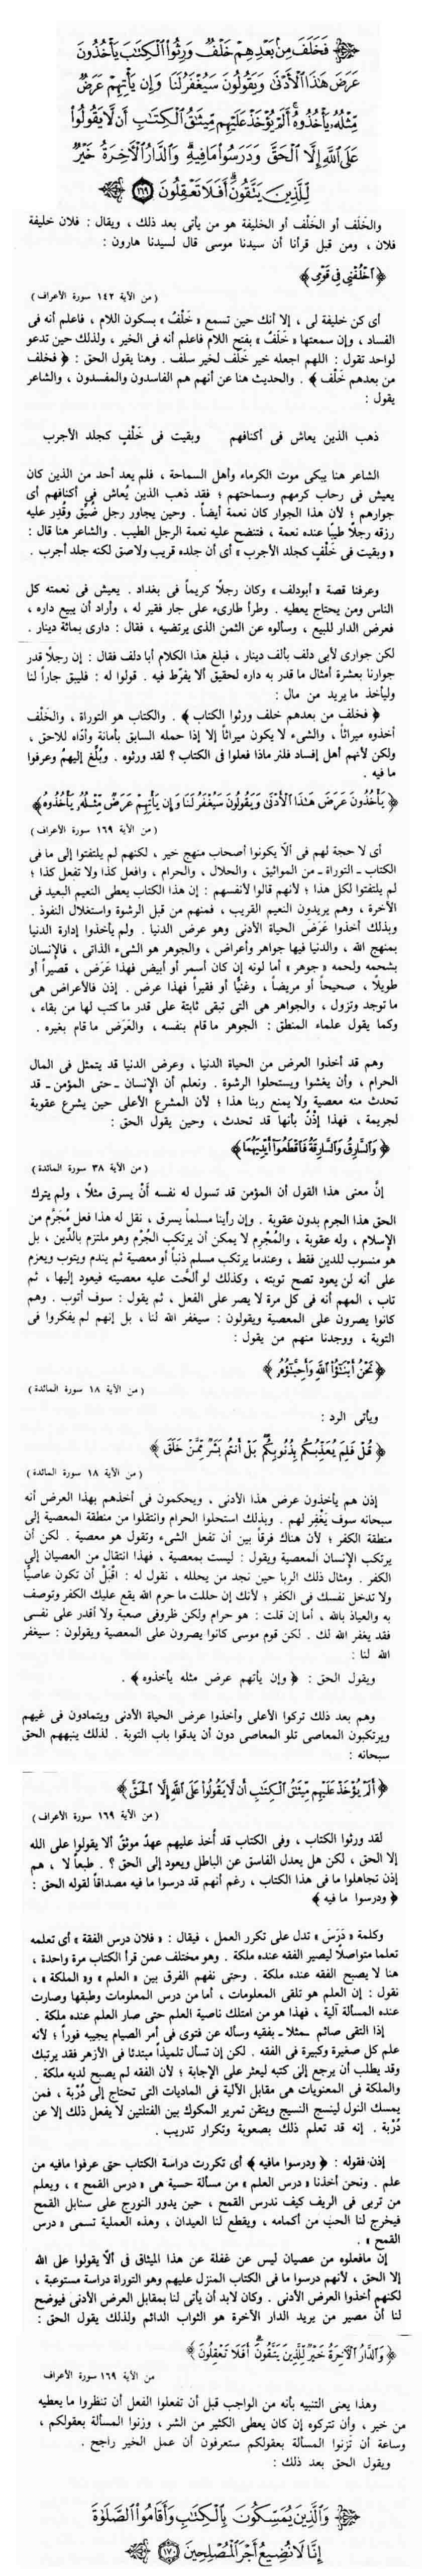 فَخَلَفَ مِنۢ بَعْدِهِمْ خَلْفٌ وَرِثُوا۟ ٱلْكِتَٰبَ يَأْخُذُونَ
عَرَضَ هَٰذَا ٱلْأَدْنَىٰ وَيَقُولُونَ سَيُغْفَرُ لَنَا وَإِن يَأْتِهِمْ عَرَضٌ
مِّثْلُهُۥ يَأْخُذُوهُ أَلَمْ يُؤْخَذْ عَلَيْهِم مِّيثَٰقُ ٱلْكِتَٰبِ أَن لَّا يَقُولُوا۟
عَلَى ٱللَّهِ إِلَّا ٱلْحَقَّ وَدَرَسُوا۟ مَا فِيهِ وَٱلدَّارُ ٱلْءَاخِرَةُ خَيْرٌ
لِّلَّذِينَ يَتَّقُونَ أَفَلَا تَعْقِلُونَ ١٦٩
والخَلَف أو الخَلْف أو الخليفة هو من يأتى بعد ذلك ، ويقال : فلان خليفة
فلان ، ومن قبل قرأنا أن سيدنا موسى قال لسيدنا هارون :
﴿ ٱخْلُفْنِى فِى قَوْمِى ﴾
( من الآية ١٤٢ سورة الأعراف )
أى كن خليفة لى ، إلا أنك حين تسمع « خَلْفٌ » بسكون اللام ، فاعلم أنه فى
الفساد ، وإن سمعتها « خَلَفٌ » بفتح اللام فاعلم أنه فى الخير ، ولذلك حين تدعو
لواحد تقول : اللهم اجعله خير خَلَف لخير سلف . وهنا يقول الحق : ﴿ فخلف
من بعدهم خَلْف ﴾ . والحديث هنا عن أنهم هم الفاسدون والمفسدون ، والشاعر
يقول :
ذهب الذين يعاش فى أكنافهم وبقيت فى خَلْفٍ كجلد الأجرب
الشاعر هنا يبكى موت الكرماء وأهل السماحة ، فلم يعد أحد من الذين كان
يعيش فى رحاب كرمهم وسماحتهم ؛ فقد ذهب الذين يُعاش فى أكنافهم أى
جوارهم ؛ لأن هذا الجوار كان نعمة أيضاً . وحين يجاور رجل ضُيِّق وقُدِر عليه
رزقه رجلاً طيبًا عنده نعمة ، فتنضح عليه نعمة الرجل الطيب . والشاعر هنا قال :
« وبقيت فى خَلْفٍ كجلد الأجرب » أى أن جلده قريب ولاصق لكنه جلد أجرب .
وعرفنا قصة « أبودلف » وكان رجلاً كريماً فى بغداد . يعيش فى نعمته كل
الناس ومن يحتاج يعطيه . وطرأ طارىء على جار فقير له ، وأراد أن يبيع داره ،
فعرض الدار للبيع ، وسألوه عن الثمن الذى يرتضيه ، فقال : دارى بمائة دينار .
لكن جوارى لأبى دلف بألف دينار ، فبلغ هذا الكلام أبا دلف فقال : إن رجلاً قدر
جوارنا بعشرة أمثال ما قدر به داره لحقيق ألا يفرّط فيه . قولوا له : فليبق جاراً لنا
وليأخذ ما يريد من مال :
﴿ فخلف من بعدهم خلف ورثوا الكتاب ﴾ . والكتاب هو التوراة ، والخَلْف
أخذوه ميراثاً ، والشىء لا يكون ميراثاً إلا إذا حمله السابق بأمانة وأدّاه للاحق ،
ولكن لأنهم أهل إفساد فلنر ماذا فعلوا فى الكتاب ؟ لقد ورثوه . وبُلِّغ إليهم وعرفوا
ما فيه .
﴿ يَأْخُذُونَ عَرَضَ هَٰذَا ٱلْأَدْنَىٰ وَيَقُولُونَ سَيُغْفَرُ لَنَا وَإِن يَأْتِهِمْ عَرَضٌ مِّثْلُهُۥ يَأْخُذُوهُ ﴾
( من الآية ١٦٩ سورة الأعراف )
أى لا حجة لهم فى ألا يكونوا أصحاب منهج خير ، لكنهم لم يلتفتوا إلى ما فى
الكتاب ـ التوراة ـ من المواثيق ، والحلال ، والحرام ، وافعل كذا ولا تفعل كذا ؛
لم يلتفتوا لكل هذا ؛ لأنهم قالوا لأنفسهم : إن هذا الكتاب يعطى النعيم البعيد فى
الآخرة ، وهم يريدون النعيم القريب ، فمنهم من قبل الرشوة واستغلال النفوذ .
وبذلك أخذوا عَرَضَ الحياة الأدنى وهو عرض الدنيا . ولم يأخذوا إدارة الدنيا
بمنهج الله ، والدنيا فيها جواهر وأعراض ، والجوهر هو الشىء الذاتى ، فالإنسان
بشحمه ولحمه « جوهر » أما لونه إن كان أسمر أو أبيض فهذا عَرَض ، قصيراً أو
طويلاً ، صحيحاً أو مريضاً ، وغنيًّا أو فقيراً فهذا عرض . إذن فالأعراض هى
ما توجد وتزول ، والجواهر هى التى تبقى ثابتة على قدر ما كتب لها من بقاء ،
وكما يقول علماء المنطق : الجوهر ما قام بنفسه ، والعَرَض ما قام بغيره .
وهم قد أخذوا العرض من الحياة الدنيا ، وعرض الدنيا قد يتمثل فى المال
الحرام ، وأن يغشوا ويستحلوا الرشوة . ونعلم أن الإنسان ـ حتى المؤمن ـ قد
تحدث منه معصية ولا يمنع ربنا هذا ؛ لأن المشرع الأعلى حين يشرع عقوبة
لجريمة ، فهذا إذْنٌ بأنها قد تحدث ، وحين يقول الحق :
﴿ وَٱلسَّارِقُ وَٱلسَّارِقَةُ فَٱقْطَعُوٓا۟ أَيْدِيَهُمَا ﴾
( من الآية ٣٨ سورة المائدة )
إنَّ معنى هذا القول أن المؤمن قد تسول له نفسه أنْ يسرق مثلاً ، ولم يترك
الحق هذا الجرم بدون عقوبة . وإن رأينا مسلماً يسرق ، نقل له هذا فعل مُجَرَّم من
الإسلام ، وله عقوبة ، والمُجْرِم لا يمكن أن يرتكب الجُرْم وهو ملتزم بالدِّين ، بل
هو منسوب للدين فقط ، وعندما يرتكب مسلم ذنباً أو معصية ثم يندم ويتوب ويعزم
على أنه لن يعود تصح توبته ، وكذلك لو ألحّت عليه معصيته فيعود إليها ، ثم
تاب ، المهم أنه فى كل مرة لا يصر على الفعل ، ثم يقول : سوف أتوب . وهم
كانوا يصرون على المعصية ويقولون : سيغفر الله لنا ، بل إنهم لم يفكروا فى
التوبة ، ووجدنا منهم من يقول :
﴿ نَحْنُ أَبْنَٰٓؤُا۟ ٱللَّهِ وَأَحِبَّٰٓؤُهُۥ ﴾
( من الآية ١٨ سورة المائدة )
ويأتى الرد :
﴿ قُلْ فَلِمَ يُعَذِّبُكُم بِذُنُوبِكُم بَلْ أَنتُم بَشَرٌ مِّمَّنْ خَلَقَ ﴾
( من الآية ١٨ سورة المائدة )
إذن هم يأخذون عرض هذا الأدنى ، ويحكمون فى أخذهم بهذا العرض أنه
سبحانه سوف يَغْفِر لهم . وبذلك استحلوا الحرام وانتقلوا من منطقة المعصية إلى
منطقة الكفر ؛ لأن هناك فرقاً بين أن تفعل الشىء وتقول هو معصية . لكن أن
يرتكب الإنسان المعصية ويقول : ليست بمعصية ، فهذا انتقال من العصيان إلى
الكفر . ومثال ذلك الربا حين نجد من يحلله ، نقول له : اقْبَلْ أن تكون عاصيًا
ولا تدخل نفسك فى الكفر ؛ لأنك إن حللت ما حرم الله يقع عليك الكفر وتوصف
به والعياذ بالله ، أما إن قلت : هو حرام ولكن ظروفى صعبة ولا أقدر على نفسى
فقد يغفر الله لك . لكن قوم موسى كانوا يصرون على المعصية ويقولون : سيغفر
الله لنا :
ويقول الحق : ﴿ وإن يأتهم عرض مثله يأخذوه ﴾ .
وهم بعد ذلك تركوا الأعلى وأخذوا عرض الحياة الأدنى ويتمادون فى غيهم
ويرتكبون المعاصى تلو المعاصى دون أن يدقوا باب التوبة . لذلك ينبههم الحق
سبحانه :
﴿ أَلَمْ يُؤْخَذْ عَلَيْهِم مِّيثَٰقُ ٱلْكِتَٰبِ أَن لَّا يَقُولُوا۟ عَلَى ٱللَّهِ إِلَّا ٱلْحَقَّ ﴾
( من الآية ١٦٩ سورة الأعراف )
لقد ورثوا الكتاب ، وفى الكتاب قد أُخذ عليهم عهدٌ موثقٌ ألا يقولوا على الله
إلا الحق ، لكن هل يعدل الفاسق عن الباطل ويعود إلى الحق ؟ . طبعاً لا ، هم
إذن تجاهلوا ما فى هذا الكتاب ، رغم أنهم قد درسوا ما فيه مصداقاً لقوله الحق :
﴿ ودرسوا ما فيه ﴾
وكلمة « دَرَسَ » تدل على تكرر العمل ، فيقال : « فلان درس الفقة » أى تعلمه
تعلما متواصلاً ليصير الفقه عنده ملكة . وهو مختلف عمن قرأ الكتاب مرة واحدة ،
هنا لا يصبح الفقه عنده ملكة . وحتى نفهم الفرق بين « العلم » و« الملكة » ،
نقول : إن العلم هو تلقى المعلومات ، أما من درس المعلومات وطبقها وصارت
عنده المسألة آلية ، فهذا هو من امتلك ناصية العلم حتى صار العلم عنده ملكة .
إذا التقى صائم ـ مثلا ـ بفقيه وسأله عن فتوى فى أمر الصيام يجيبه فوراً ؛ لأنه
علم كل صغيرة وكبيرة فى الفقه . لكن إن تسأل تلميذاً مبتدئا فى الأزهر فقد يرتبك
وقد يطلب أن يرجع إلى كتبه ليعثر على الإجابة ؛ لأن الفقه لم يصبح لديه ملكة .
والملكة فى المعنويات هى مقابل الآلية فى الماديات التى تحتاج إلى دُرْبة ، فمن
يمسك النول لينسج النسيج ويتقن تمرير المكوك بين الفتلتين لا يفعل ذلك إلا عن
دُرْبة . إنه قد تعلم ذلك بصعوبة وتكرار تدريب .
إذن فقوله : ﴿ ودرسوا مافيه ﴾ أى تكررت دراسة الكتاب حتى عرفوا مافيه من
علم . ونحن أخذنا « درس العلم » من مسألة حسية هى « درس القمح » ، ويعلم
من تربى فى الريف كيف ندرس القمح ، حين يدور النورج على سنابل القمح
فيخرج لنا الحب من أكمامه ، ويقطع لنا العيدان ، وهذه العملية تسمى « درس
القمح » .
إن مافعلوه من عصيان ليس عن غفلة عن هذا الميثاق فى ألّا يقولوا على الله
إلا الحق ، لأنهم درسوا ما فى الكتاب المنزل عليهم وهو التوراة دراسة مستوعبة ،
لكنهم أخذوا العرض الأدنى . وكان لابد أن يأتى لنا بمقابل العرض الأدنى فيوضح
لنا أن مصير من يريد الدار الآخرة هو الثواب الدائم ولذلك يقول الحق :
﴿ وَٱلدَّارُ ٱلْءَاخِرَةُ خَيْرٌ لِّلَّذِينَ يَتَّقُونَ أَفَلَا تَعْقِلُونَ ﴾
من الآية ١٦٩ سورة الأعراف
وهذا يعنى التنبيه بأنه من الواجب قبل أن تفعلوا الفعل أن تنظروا ما يعطيه
من خير ، وأن تتركوه إن كان يعطى الكثير من الشر ، وزنوا المسألة بعقولكم ،
وساعة أن تَزنوا المسألة بعقولكم ستعرفون أن عمل الخير راجح .
ويقول الحق بعد ذلك :
وَٱلَّذِينَ يُمَسِّكُونَ بِٱلْكِتَٰبِ وَأَقَامُوا۟ ٱلصَّلَوٰةَ
إِنَّا لَا نُضِيعُ أَجْرَ ٱلْمُصْلِحِينَ ١٧٠